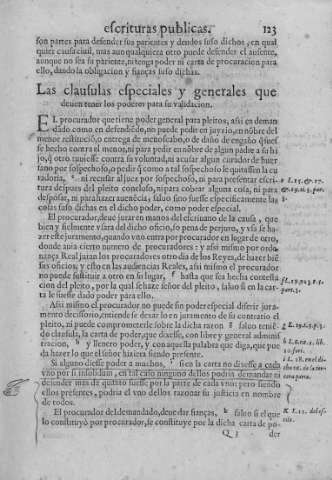 escrituras publicas. 123
son partes para defender sus parientes y deudos suso dichos, en qual
quier causa ciuil, mas aunqualquiera otro puede defender al ausente,
aunque no sea su pariente, ni tenga poder ni carta de procuracion para
ello, dando la obligacion y fianças suso dichas.
Las clausulas especiales y generales que
deuen tener los poderes para su validacion.
EL procurador que tiene poder general para pleitos, assi en deman
dādo como en defendiēdo, no puede pedir en juyzio, en nōbre del
menor restituciō, o entrega de menoscabo, o de daño de engaño que
se hecho contra el menor, ni para pedir en nōbre de algun padre a su hi
jo, que otro tuuiesse contra su voluntad, ni acusar algun curador de huer
fano por sospechoso, o pedir que a tal sospechoso le quitassen la cu
radoria, ni recusar al juez por sospechoso, ni para presentar escri-
tura despues del pleito concluso, ni para cobrar alguna cosa, ni para
desposar, ni para hazer auencia, saluo si no fuesse especificamente las
cosas suso dichas en el dicho poder, como poder especial.
El procurador, deue jurar en manos del escriuano de la causa, que
bien y fielmente vsará del dicho oficio, so pena de perjuro, y si se ha-
zer este juramento, quando vn entra por procurador en lugar de otro,
donde auia cierto numero de procuradores: y assi mismo por orde-
nança Real juran los procuradores otro dia de los Reyes, de hazer biē
sus oficios: y esto en las audiencias Reales, assi mismo el procurador
no puede sustituir a otro en su lugar, f hasta que sea hecha contesta
cion del pleito, por la qual se haze señor del pleito, saluo si en la car-
ta le fuesse dado poder para ello.
Assi mismo el procurador no puede sin poder especial diferir jura-
mento decissorio, entiende se dexarlo en juramento de su contrario el
pleito, ni puede comprometerle sobre la dicha razon g saluo teniē-
do clausula, la carta de poder, que diesse, con libre y general adminis
tracion, h y llenero poder, y con aquella palabra que diga, que pue
da hazer lo que el señor haria siendo presente.
Si alguno diesse poder a muchos, i si en la carta no diesse a cada
vno por si insolidum, en tal caso ninguno dellos podria demandar ni
defender mas de quanto fuesse por la parte de cada vno: pero siendo
ellos presentes, podria el vno dellos razonar su justicia en nombre
de todos.
El procurador del demandado, deue dar fianças, k saluo si el que
lo constituyò por procurador, se constituye por la dicha carta de po
Q 3 der